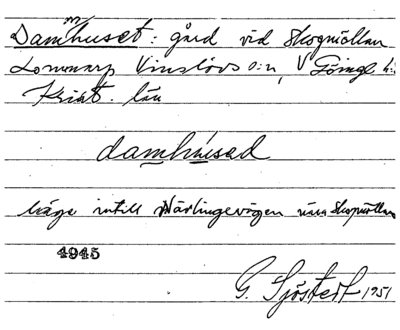 Damhuset: gård vid Skogmöllan
Lommarp Vinslövs s:n, V Göinge h:
Krist. län
damhúsed
läge intill Wärlingevägen nära Skogmöllan
4945
G. Sjöstedt 1951